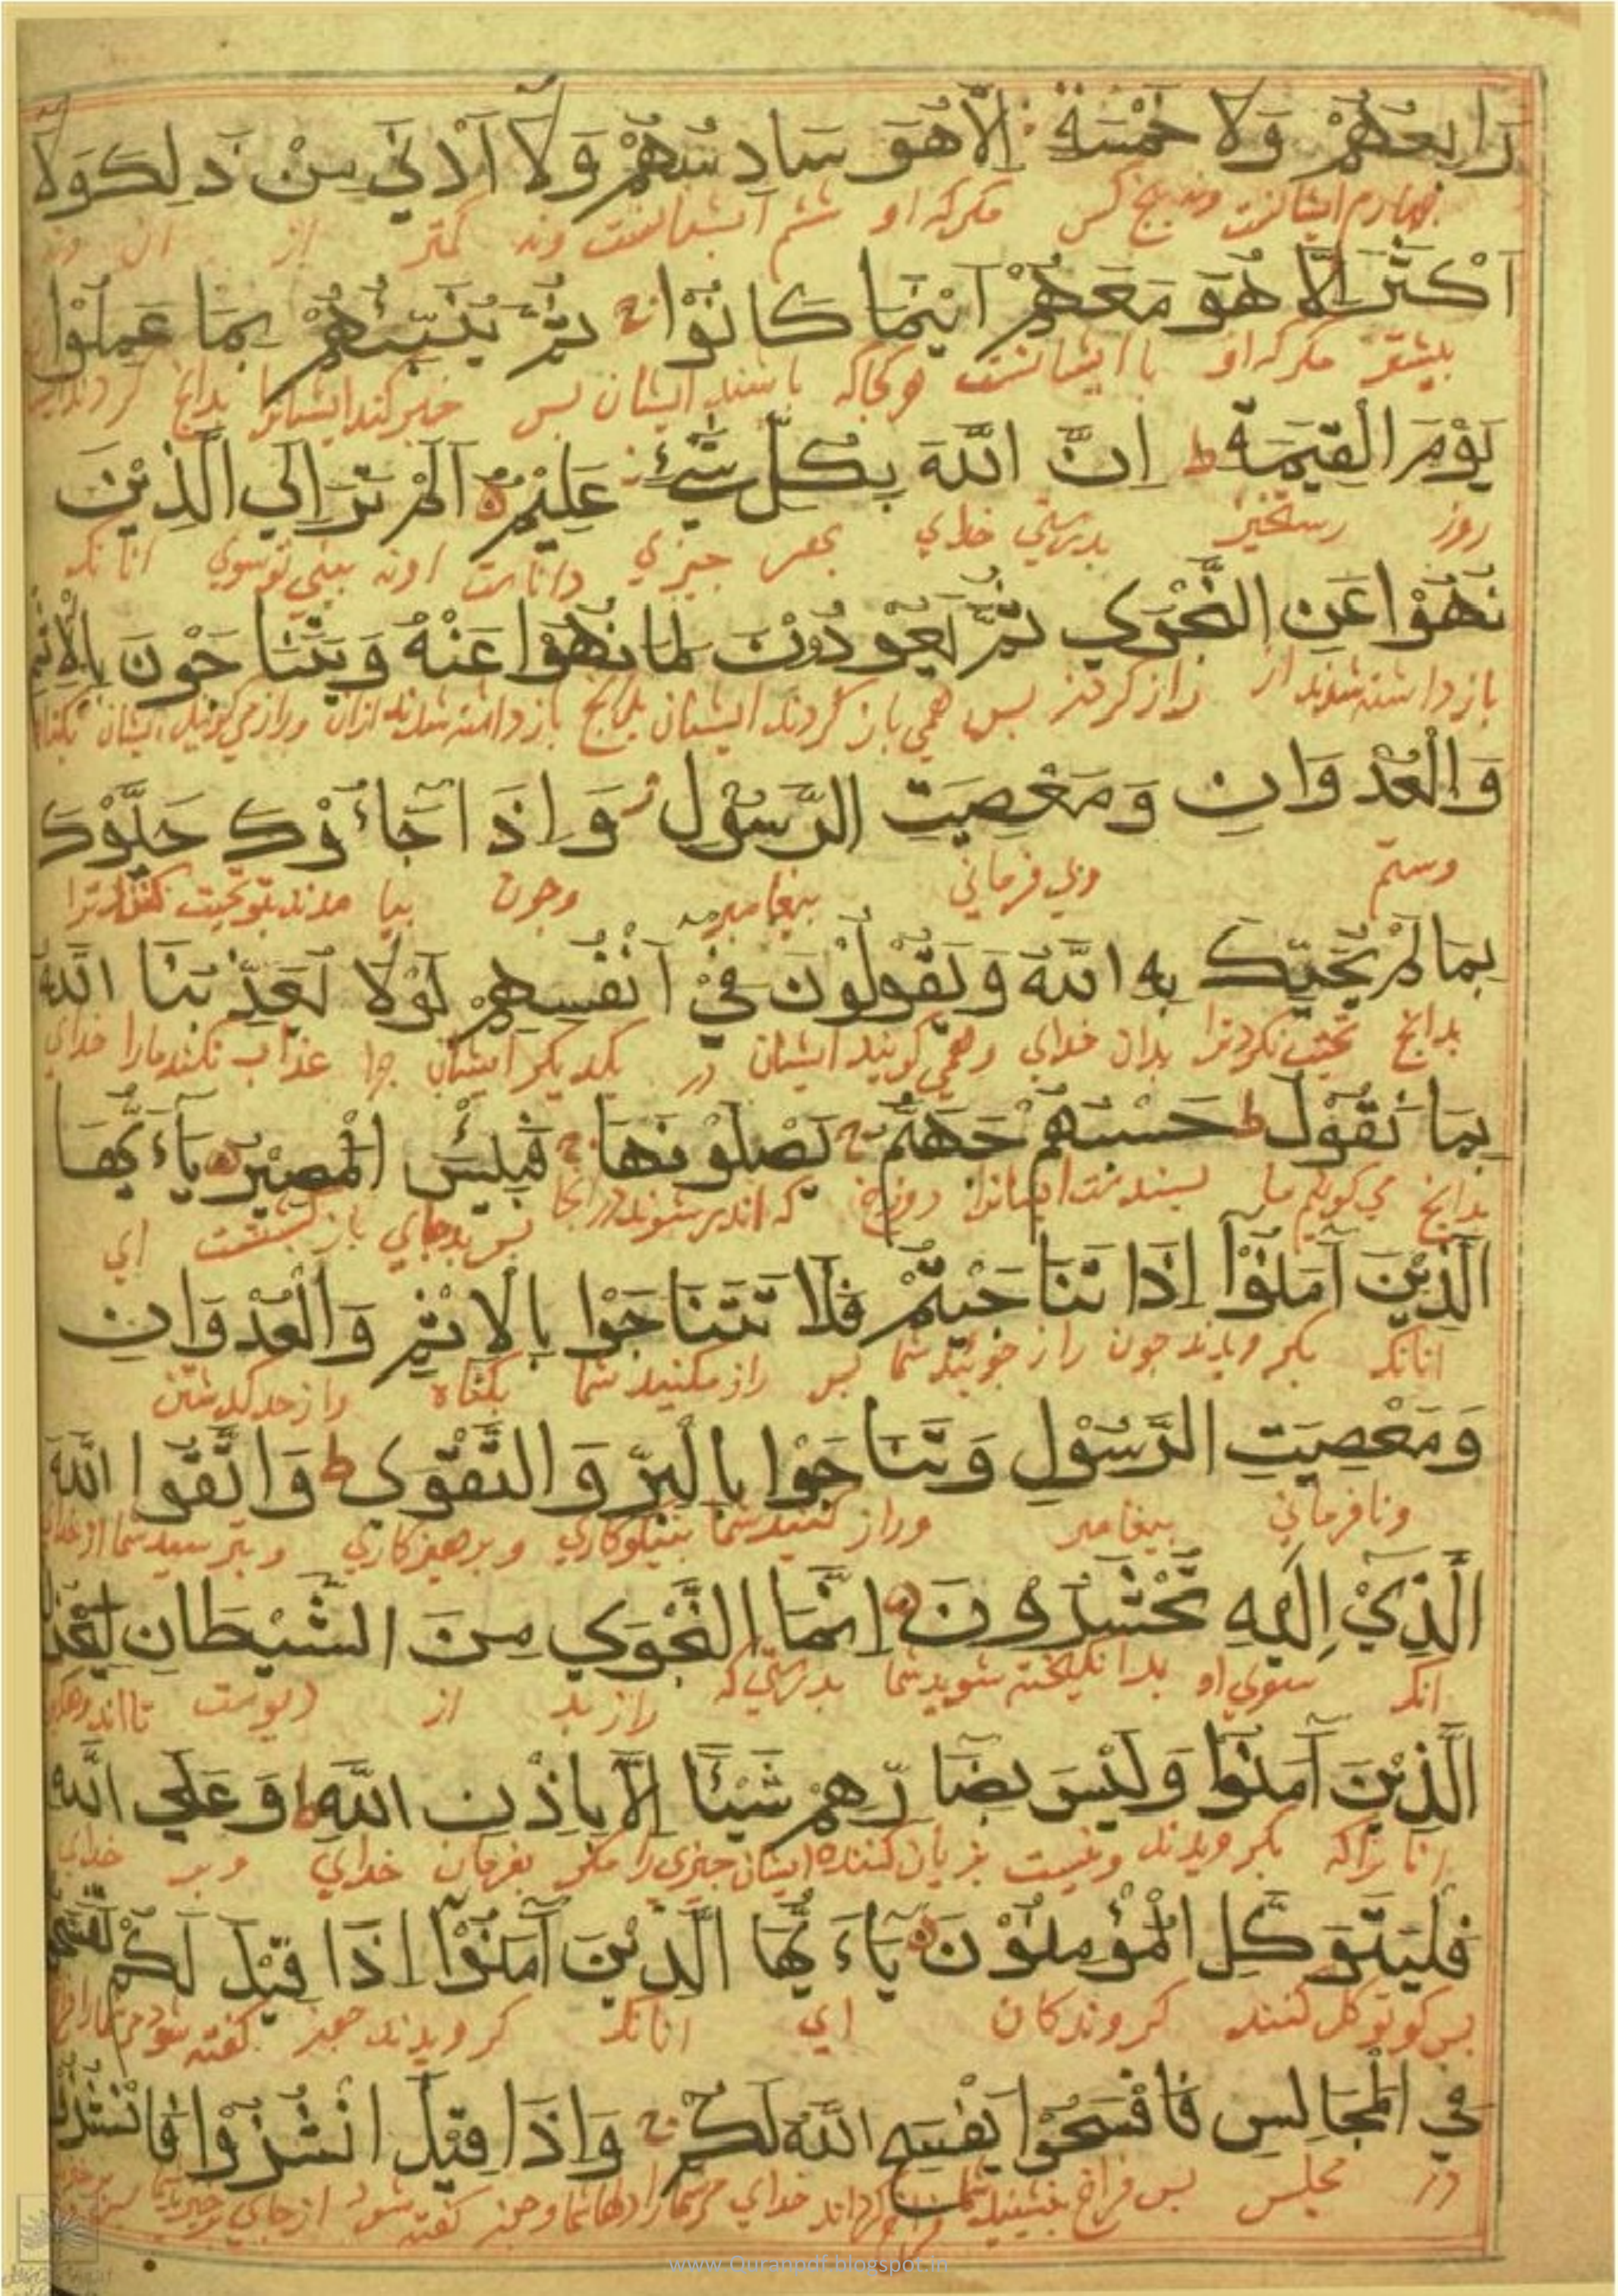 رَابِعُهُمْ وَلَا خَمْسَةٍ اِلَّا هُوَ سَادِسُهُمْ وَلَا اَدْنٰي مِنْ ذٰلِكَ وَلَا
چهارم ایشانست ونه پنج کس مکر که او ششم ایشانست ونه کمتر از ان ونه
اَكْثَرَ اِلَّا هُوَ مَعَهُمْ اَيْنَمَا كَانُوْا ج ثُمَّ يُنَبِّئُهُمْ بِمَا عَمِلُوْا
بیشتر مکر که او با ایشانست هر کجا که باشند ایشان پس خبر کند ایشانرا بدانچ کردند
يَوْمَ الْقِيٰمَةِ ط اِنَّ اللّٰهَ بِكُلِّ شَيْءٍ عَلِيْمٌ اَلَمْ تَرَ اِلَي الَّذِيْنَ
روز رستخیز بدرستي خداي بهر چیزي داناست اونه بیني تو سوي انانکه
نُهُوْا عَنِ النَّجْوٰي ثُمَّ يَعُوْدُوْنَ لِمَا نُهُوْا عَنْهُ وَيَتَنَاجَوْنَ بِالْاِثْمِ
بازداشته شدند از راز کردن پس همي باز کردند ایشان بدانچ بازداشته شدند ازان وراز مي کویند ایشان
وَالْعُدْوَانِ وَمَعْصِيَتِ الرَّسُوْلِ وَاِذَا جَاءُوْكَ حَيَّوْكَ
وستم وبي فرماني پیغامبر وچون بیامدند بتو تحیت کنند ترا
بِمَا لَمْ يُحَيِّكَ بِهِ اللّٰهُ وَيَقُوْلُوْنَ فِيْ اَنْفُسِهِمْ لَوْلَا يُعَذِّبُنَا اللّٰهُ
بدانچ تحیت نکرد ترا بدان خداي وهمي کویند ایشان در یکدیکر ایشان چرا عذاب نکند مارا خداي
بِمَا نَقُوْلُ ط حَسْبُهُمْ جَهَنَّمُ ج يَصْلَوْنَهَا ج فَبِئْسَ الْمَصِيْرُ يَاءَيُّهَا
بدانچ مي کویم ما بسندست ایشانرا دوزخ که اندر شوند در انجا پس بد جاي بازکشتست اي
الَّذِيْنَ آمَنُوْا اِذَا تَنَاجَيْتُمْ فَلَا تَتَنَاجَوْا بِالْاِثْمِ وَالْعُدْوَانِ
انانکه بکرویدند چون راز جوئید شما پس راز مکنید شما بکناه واز حد کذشتن
وَمَعْصِيَتِ الرَّسُوْلِ وَتَنَاجَوْا بِالْبِرِّ وَالتَّقْوٰي ط وَاتَّقُوا اللّٰهَ
ونافرماني پیغامبر وراز کنید شما بنیکوکاري وپرهیزکاري وبترسید شما از خداي
الَّذِيْ اِلَيْهِ تُحْشَرُوْنَ اِنَّمَا النَّجْوٰي مِنَ الشَّيْطَانِ
انکه سوي او برانکیخته شوید شما بدرستي که راز بد از دیوست تا
الَّذِيْنَ آمَنُوْا وَلَيْسَ بِضَارِّهِمْ شَيْئًا اِلَّا بِاِذْنِ اللّٰهِ ط وَعَلَي اللّٰهِ
انانرا که بکرویدند ونیست بزیان کننده ایشان چیزي را مکر بفرمان خداي وبر خداي
فَلْيَتَوَكَّلِ الْمُؤْمِنُوْنَ يَاءَيُّهَا الَّذِيْنَ آمَنُوْا اِذَا قِيْلَ لَكُمْ تَفَسَّحُوْا
پس کو توکل کنند کروندکان اي انانکه کرویدند چون کفته شود
فِي الْمَجَالِسِ فَافْسَحُوْا يَفْسَحِ اللّٰهُ لَكُمْ ج وَاِذَا قِيْلَ انْشُزُوْا فَانْشُزُوْا
در مجلس پس فراخ بنشینید خداي وچون کفته شود از جاي
www.Quranpdf.blogspot.in